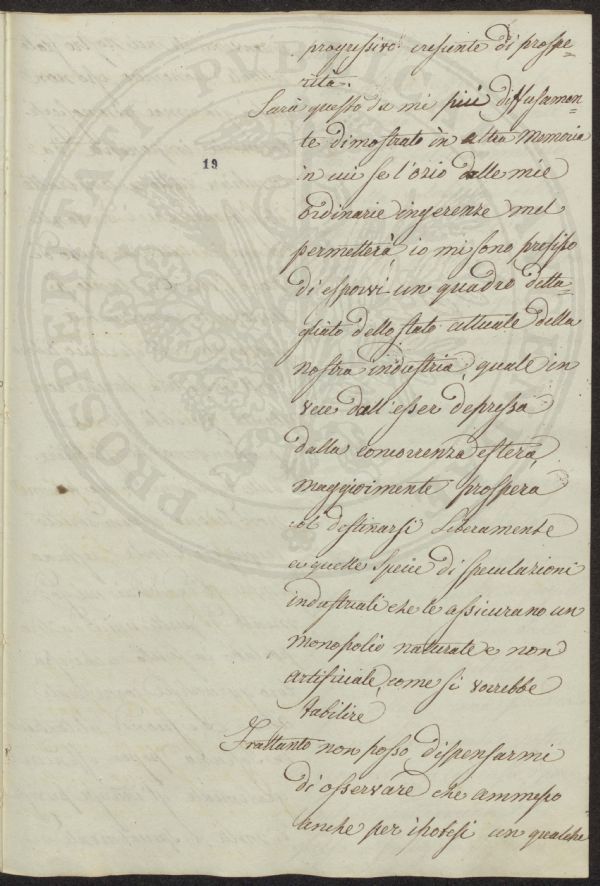 progressivo crescente di prospe=
rità.
Sarà questo da me più diffusamen=
te dimostrato in altra Memoria
19
in cui se l'ozio dalle mie
ordinarie ingerenze mel
permetterà, io mi sono prefisso
di esporvi un quadro detta=
gliato dello stato attuale della
nostra industria, quale in
vece dall'esser depressa
dalla concorrenza estera,
maggiormente prospera
col destinarsi liberamente
a quelle specie di speculazioni
industriali che le assicurano un
monopolio naturale e non
artificiale, come si vorrebbe
stabilire
Frattanto non posso dispensarmi
di osservare che ammesso
anche per ipotesi un qualche
PROSPERITATI PUBLICAE